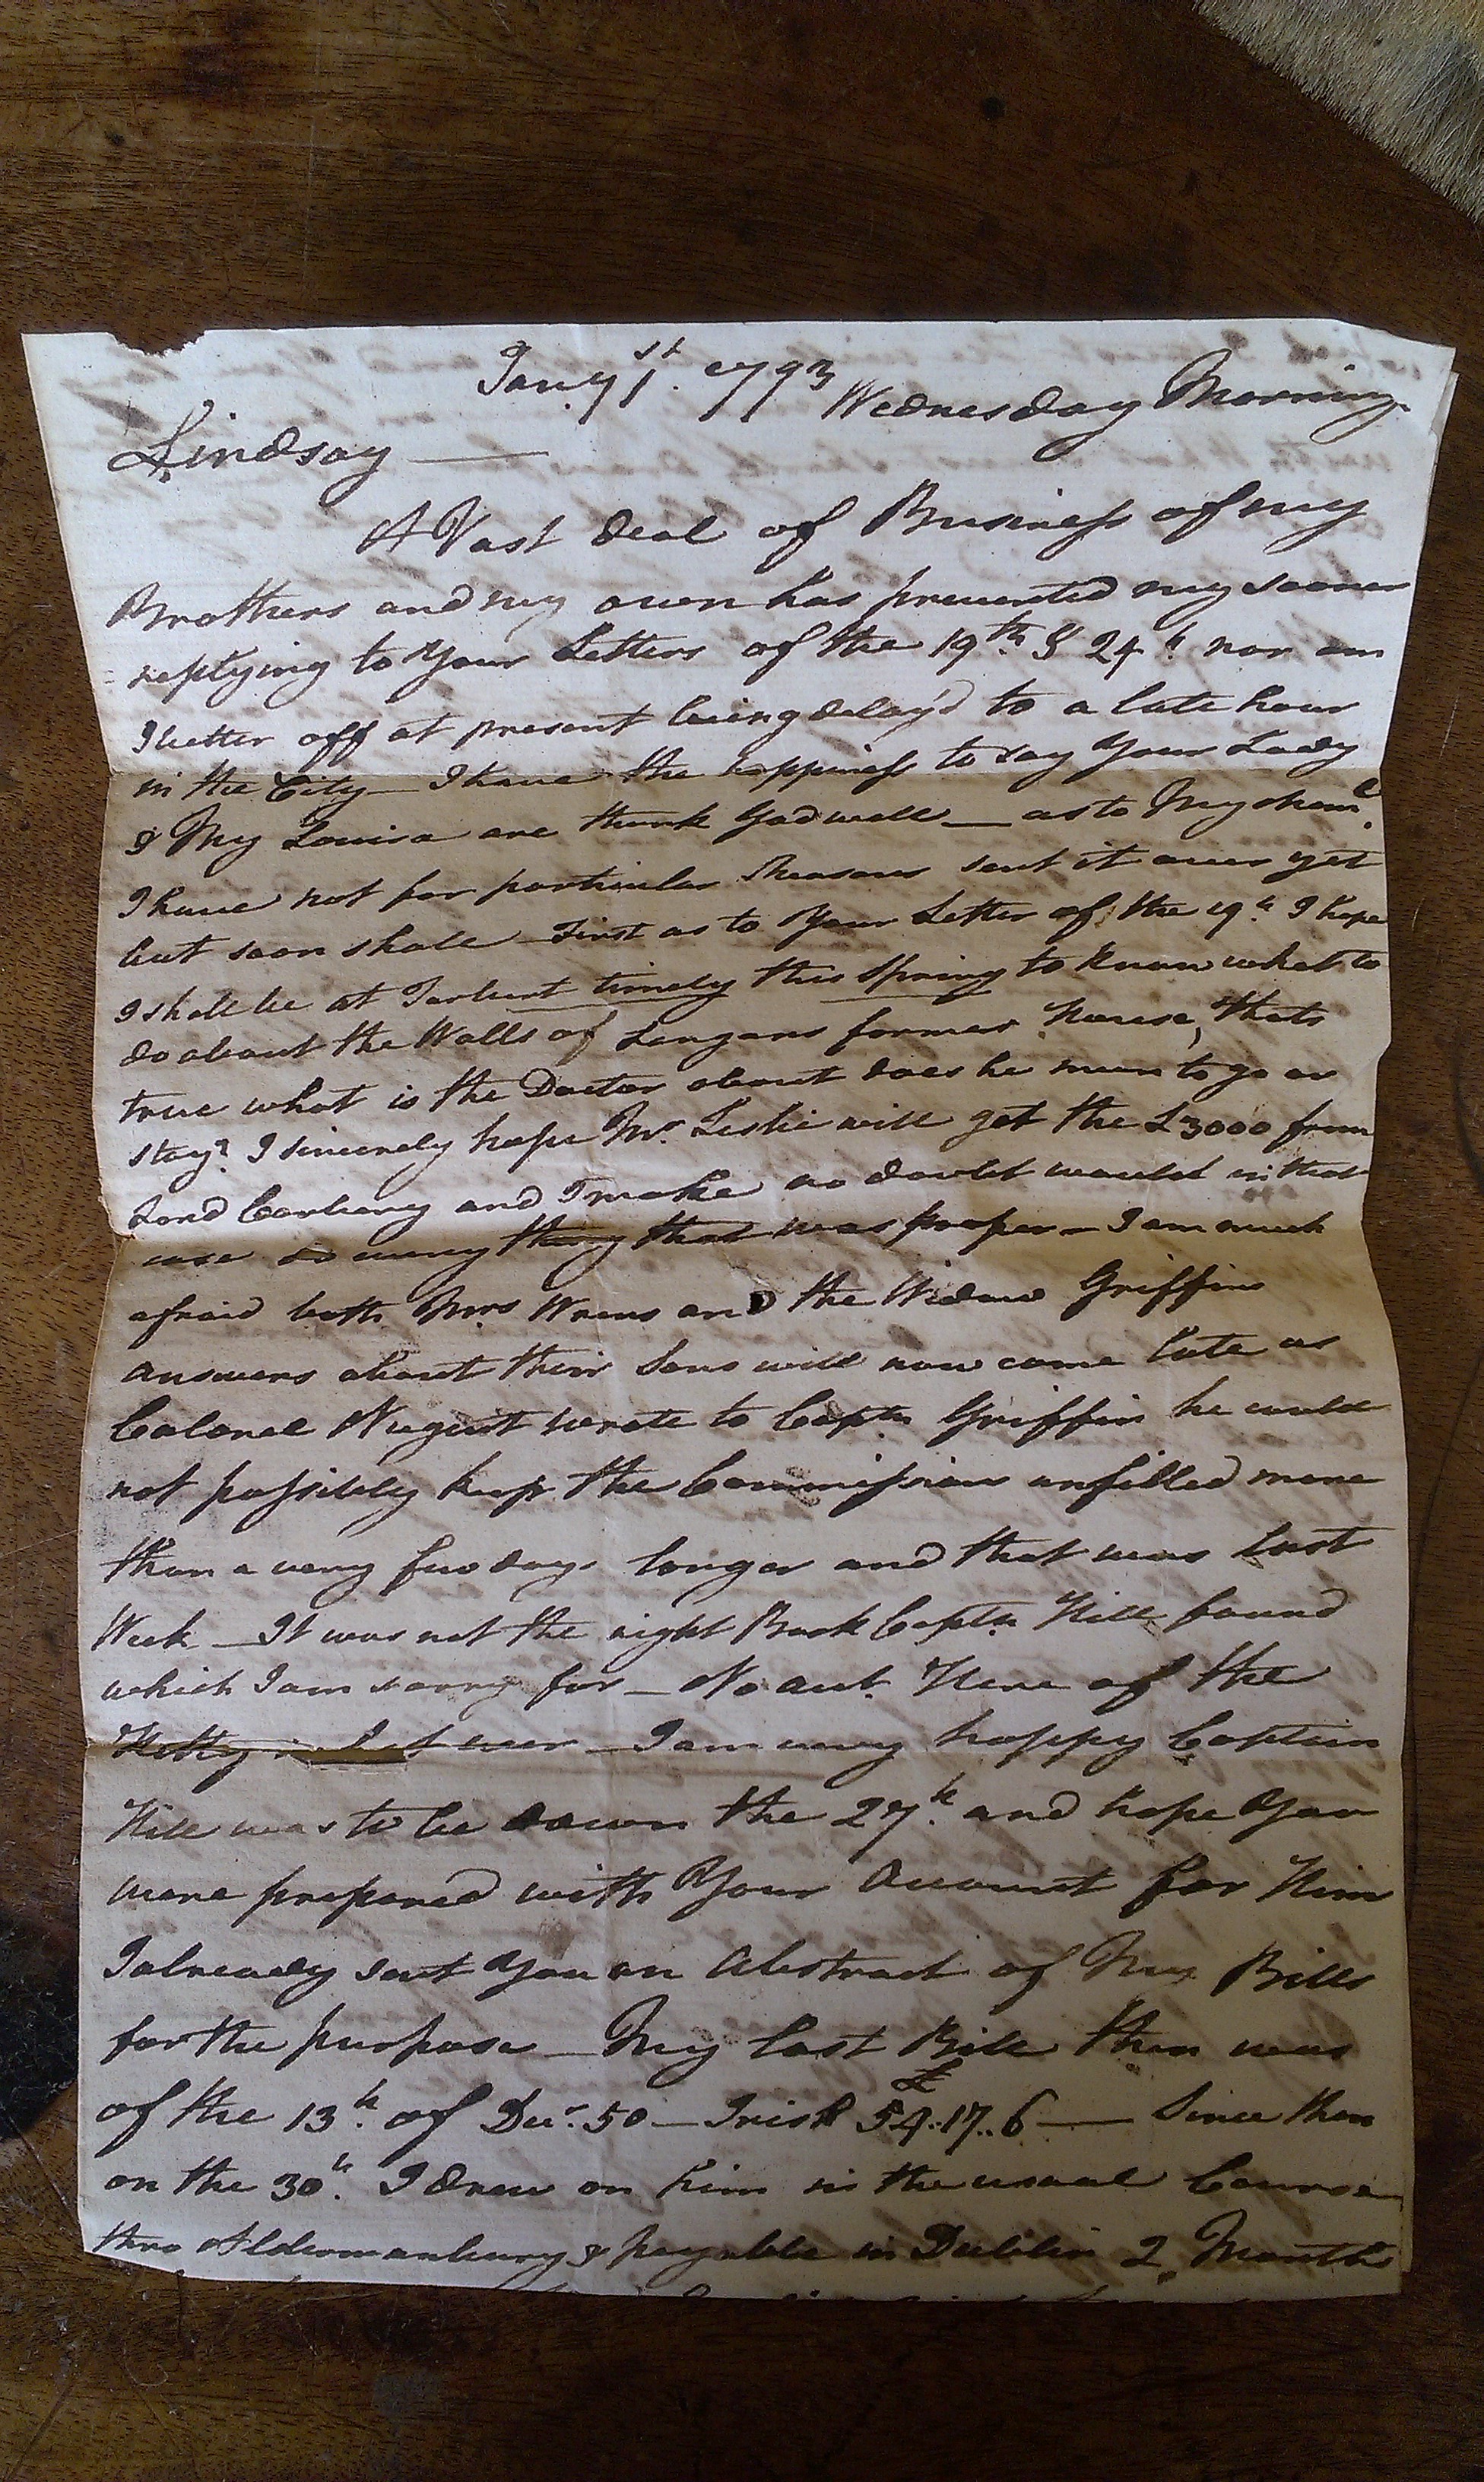 Jany 1st. 1793 Wednesday Morning
Lindsay —
A Vast deal of Business of my
Brothers and my own has prevented my sooner
replying to Your Letters of the 19th. & 24th. nor am
I better off at present being delay'd to a late hour
in the City — I have the happiness to say Your Lady
& My Louisa are thank God well — as to My
I have not for particular Reasons sent it over yet
but soon shall — First as to Your Letter of the 19th. I hope
I shall be at Tarbert timely this Spring to know what to
do about the Walls of Lengans former House, thats
true what is the Doctor about does he mean to go or
stay? I sincerely hope Mr. Leslie will get the £3000 from
Lord Carbery and I make no doubt would in that
case do every thing that was proper — I am much
afraid both Mrs Wrens and the Widow Griffins
answers about their Sons will now come late as
Colonel Nugent wrote to Captn. Griffin he could
not possibly keep the Commissions unfilled more
than a very few days longer and that was last
Week — It was not the right Book Captn. Hill found
which I am sorry for — No acct. Here of the
Hetty over — I am very happy Captain
Hill was to be down the 27th. and hope You
were prepared with Your Account for Him
I already sent You an Abstract of My Bills
for the purpose — My last Bill then was
of the 13th. of Decr. 50 — Irish £54..17..6 — Since then
on the 30th. I drew on him in the usual Course
thro Aldermanbury & payable in Dublin 2 Months